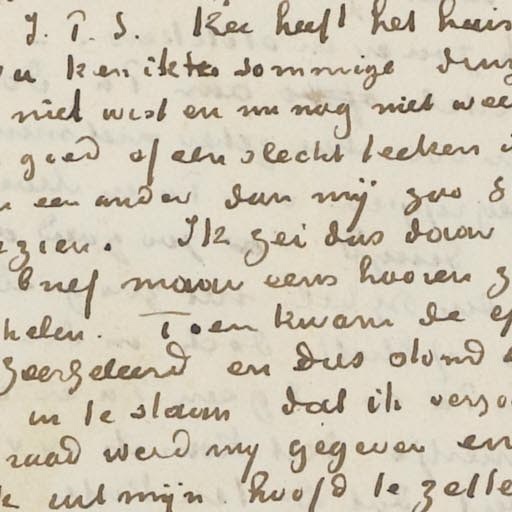 J. P. S. Kee heeft het huis
ken ik sommige
niet wist en nu nog niet
goed of een slecht teeken
een ander dan mij zoo
zien. Ik zei dus
brief maar eens hooren
Toen kwam de
zeergeleerd en dus
in te slaan dat ik
raad werd mij gegeven en
uit mijn hoofd te